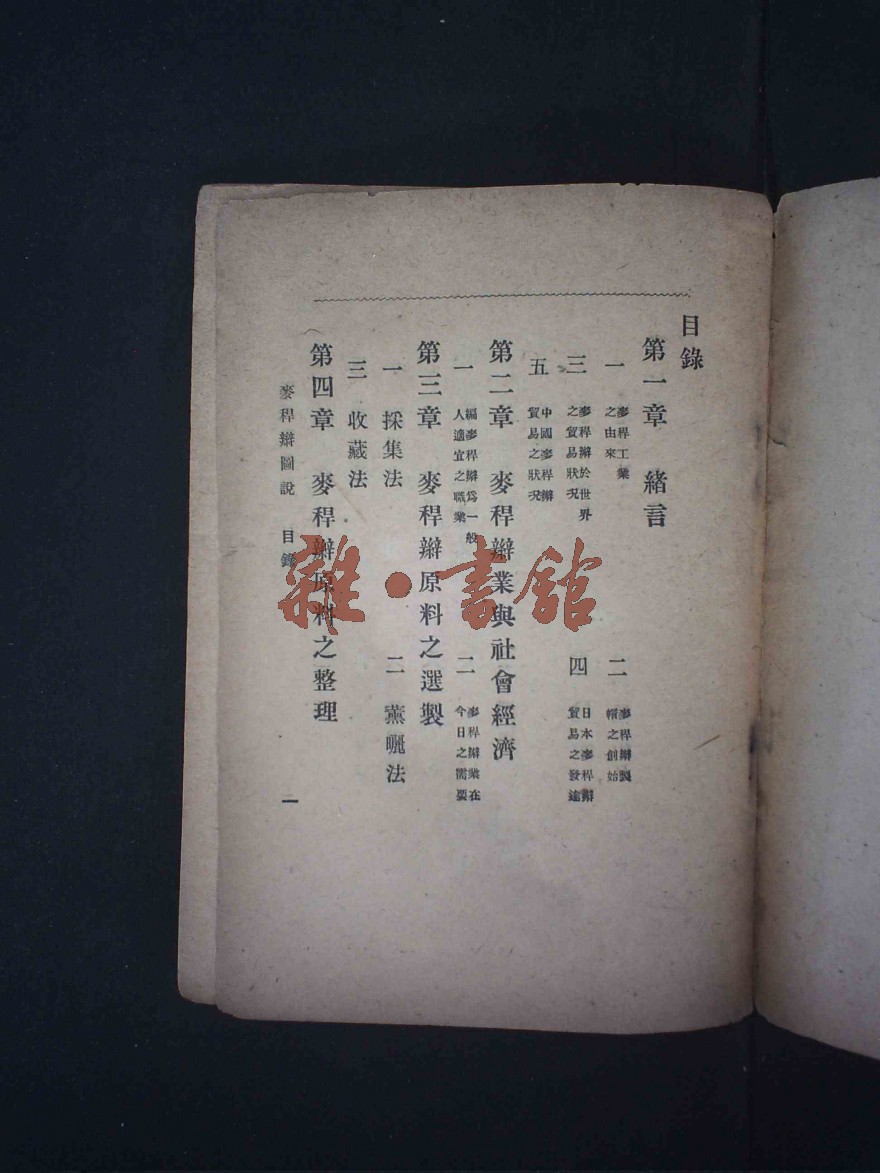 目錄
第一章　緒言
一　麥稈工業之由來
二　麥稈辮製帽之創始
三　麥稈辮於世界之貿易狀況
四　日本麥稈辮貿易之發達
五　中國麥稈辮貿易之狀況
第二章　麥稈辮業與社會經濟
一　編麥稈辮爲一般人適宜之職業
二　麥稈辮業在今日之需要
第三章　麥稈辮原料之選製
一　採集法
二　薰曬法
三　收藏法
第四章　麥稈辮原料之整理
麥稈辮圖說　目錄
一
雜·書館